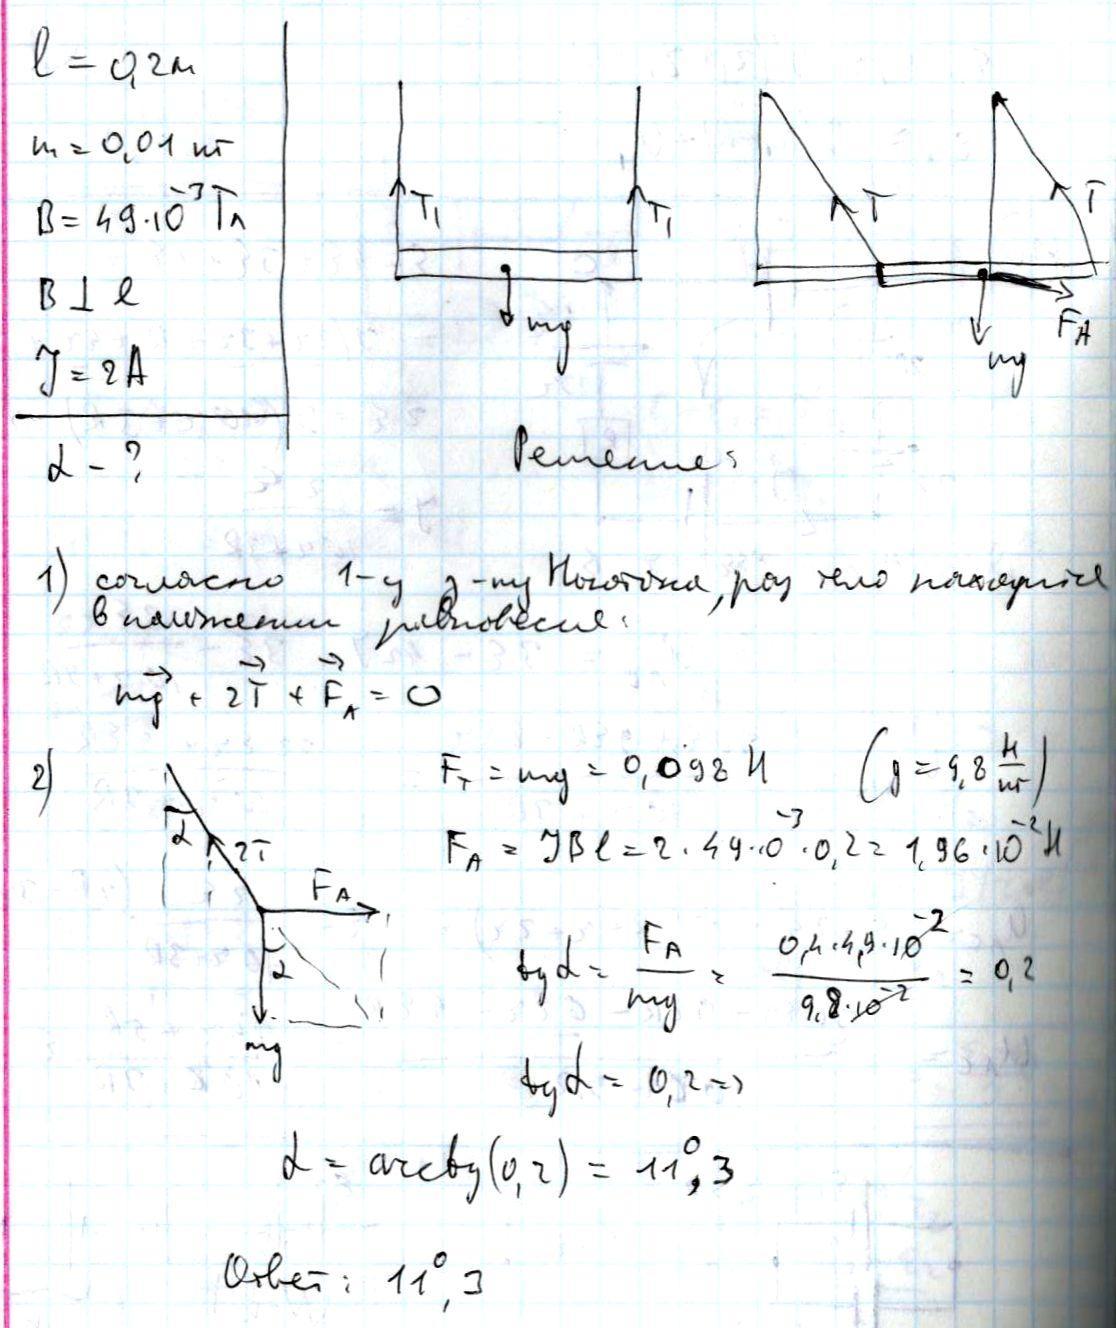 l = 0,2м
m = 0,01 кг
B = 49·10⁻³ Тл
B ⊥ l
J = 2A
α - ?
T₁
T₁
mg
T
T
F_A
mg
Решение:
1) согласно 1-у з-ну Ньютона, раз тело находится
в положении равновесия:
mg⃗ + 2T⃗ + F⃗_A = 0
2)
α
2T
F_A
α
mg
F_т = mg = 0,098 Н (g = 9,8 Н/кг)
F_A = JBl = 2·49·10⁻³·0,2 = 1,96·10⁻² Н
tgα = F_A/mg = 0,4·4,9·10⁻²/9,8·10⁻² = 0,2
tgα = 0,2 =>
α = arctg(0,2) = 11°,3
Ответ: 11°,3